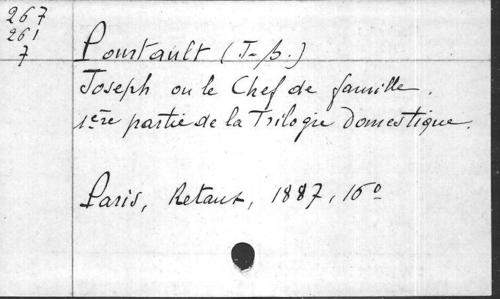 267
261
7
Poustault (J-B.)
Joseph ou le Chef de famille.
1ère partie de la Trilogie Domestique.
Paris, Retaux, 1887, 16º